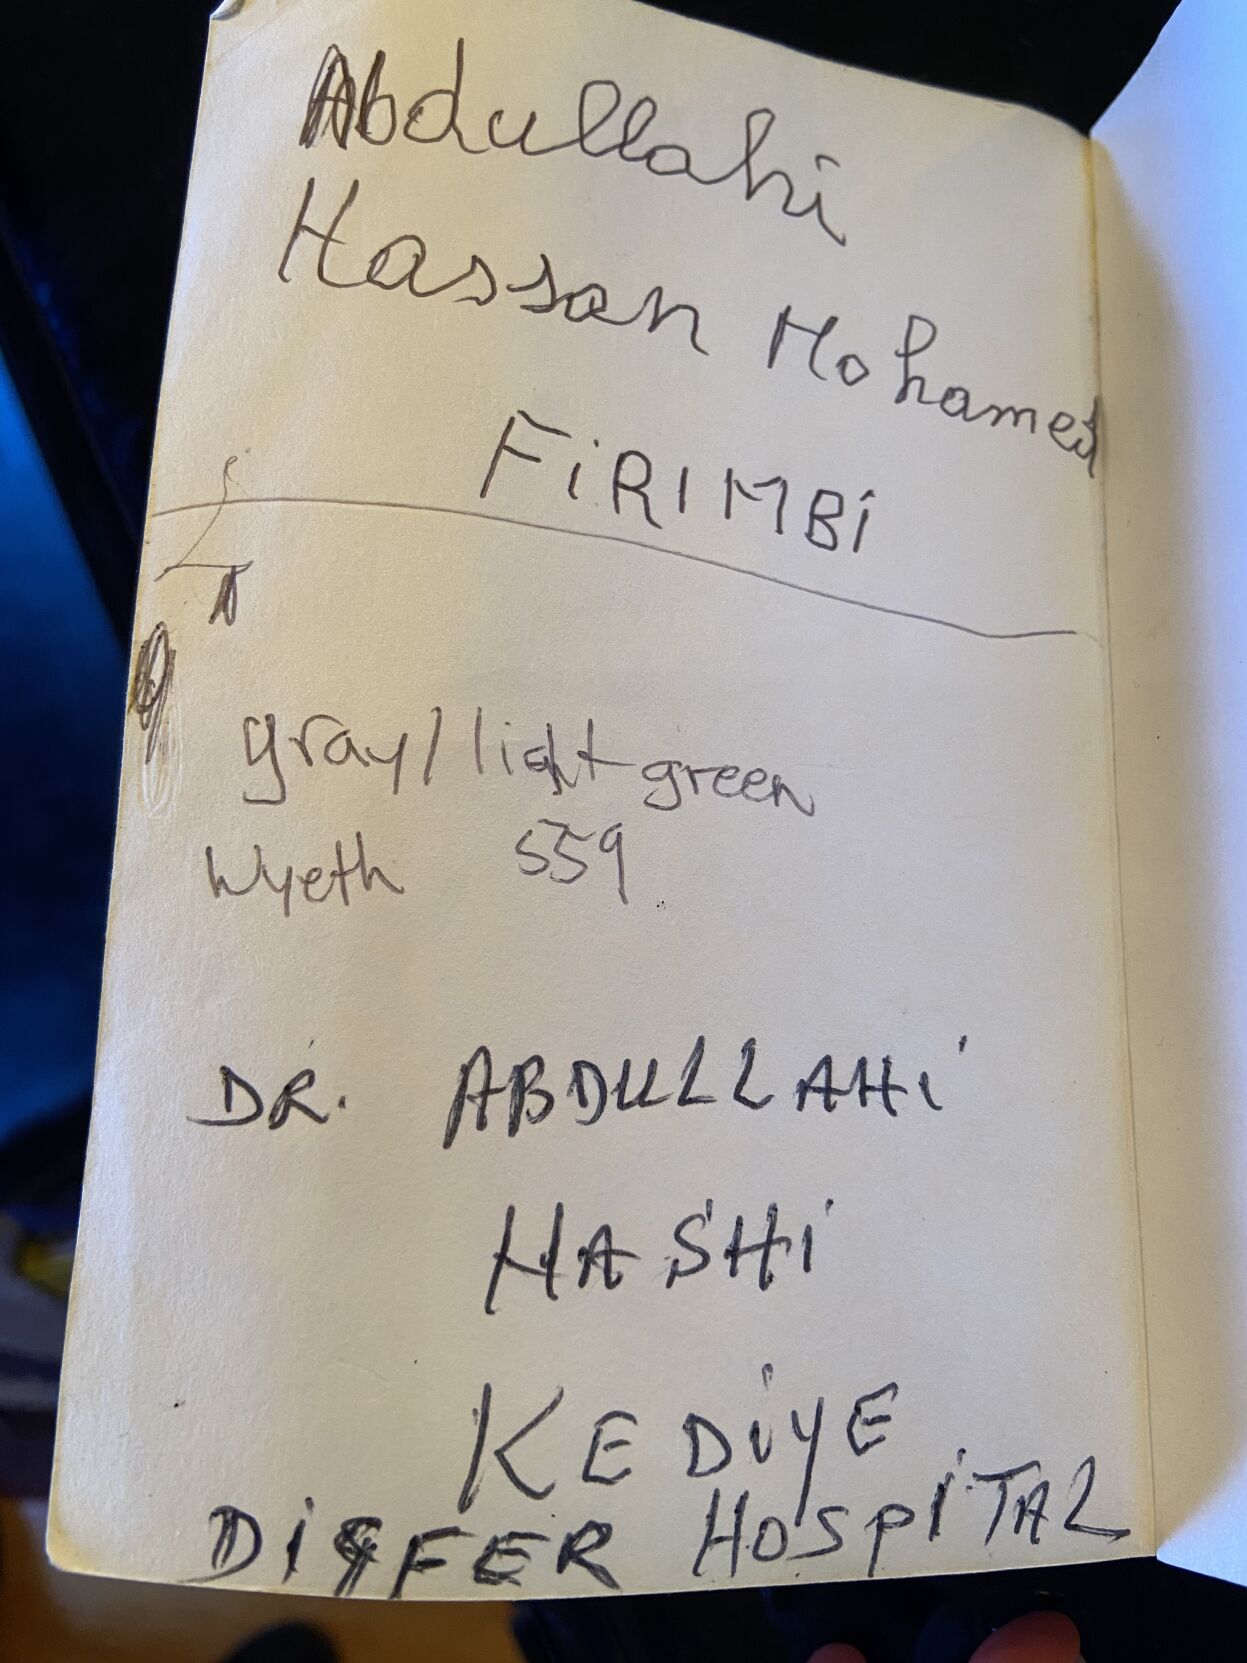 Abdullahi
Hassan Mohamed
FiRIMBi
gray/light green
Wyeth 559
DR. ABDULLAHi
HASHi
KEDiYE
DiGFER HOSPiTAL